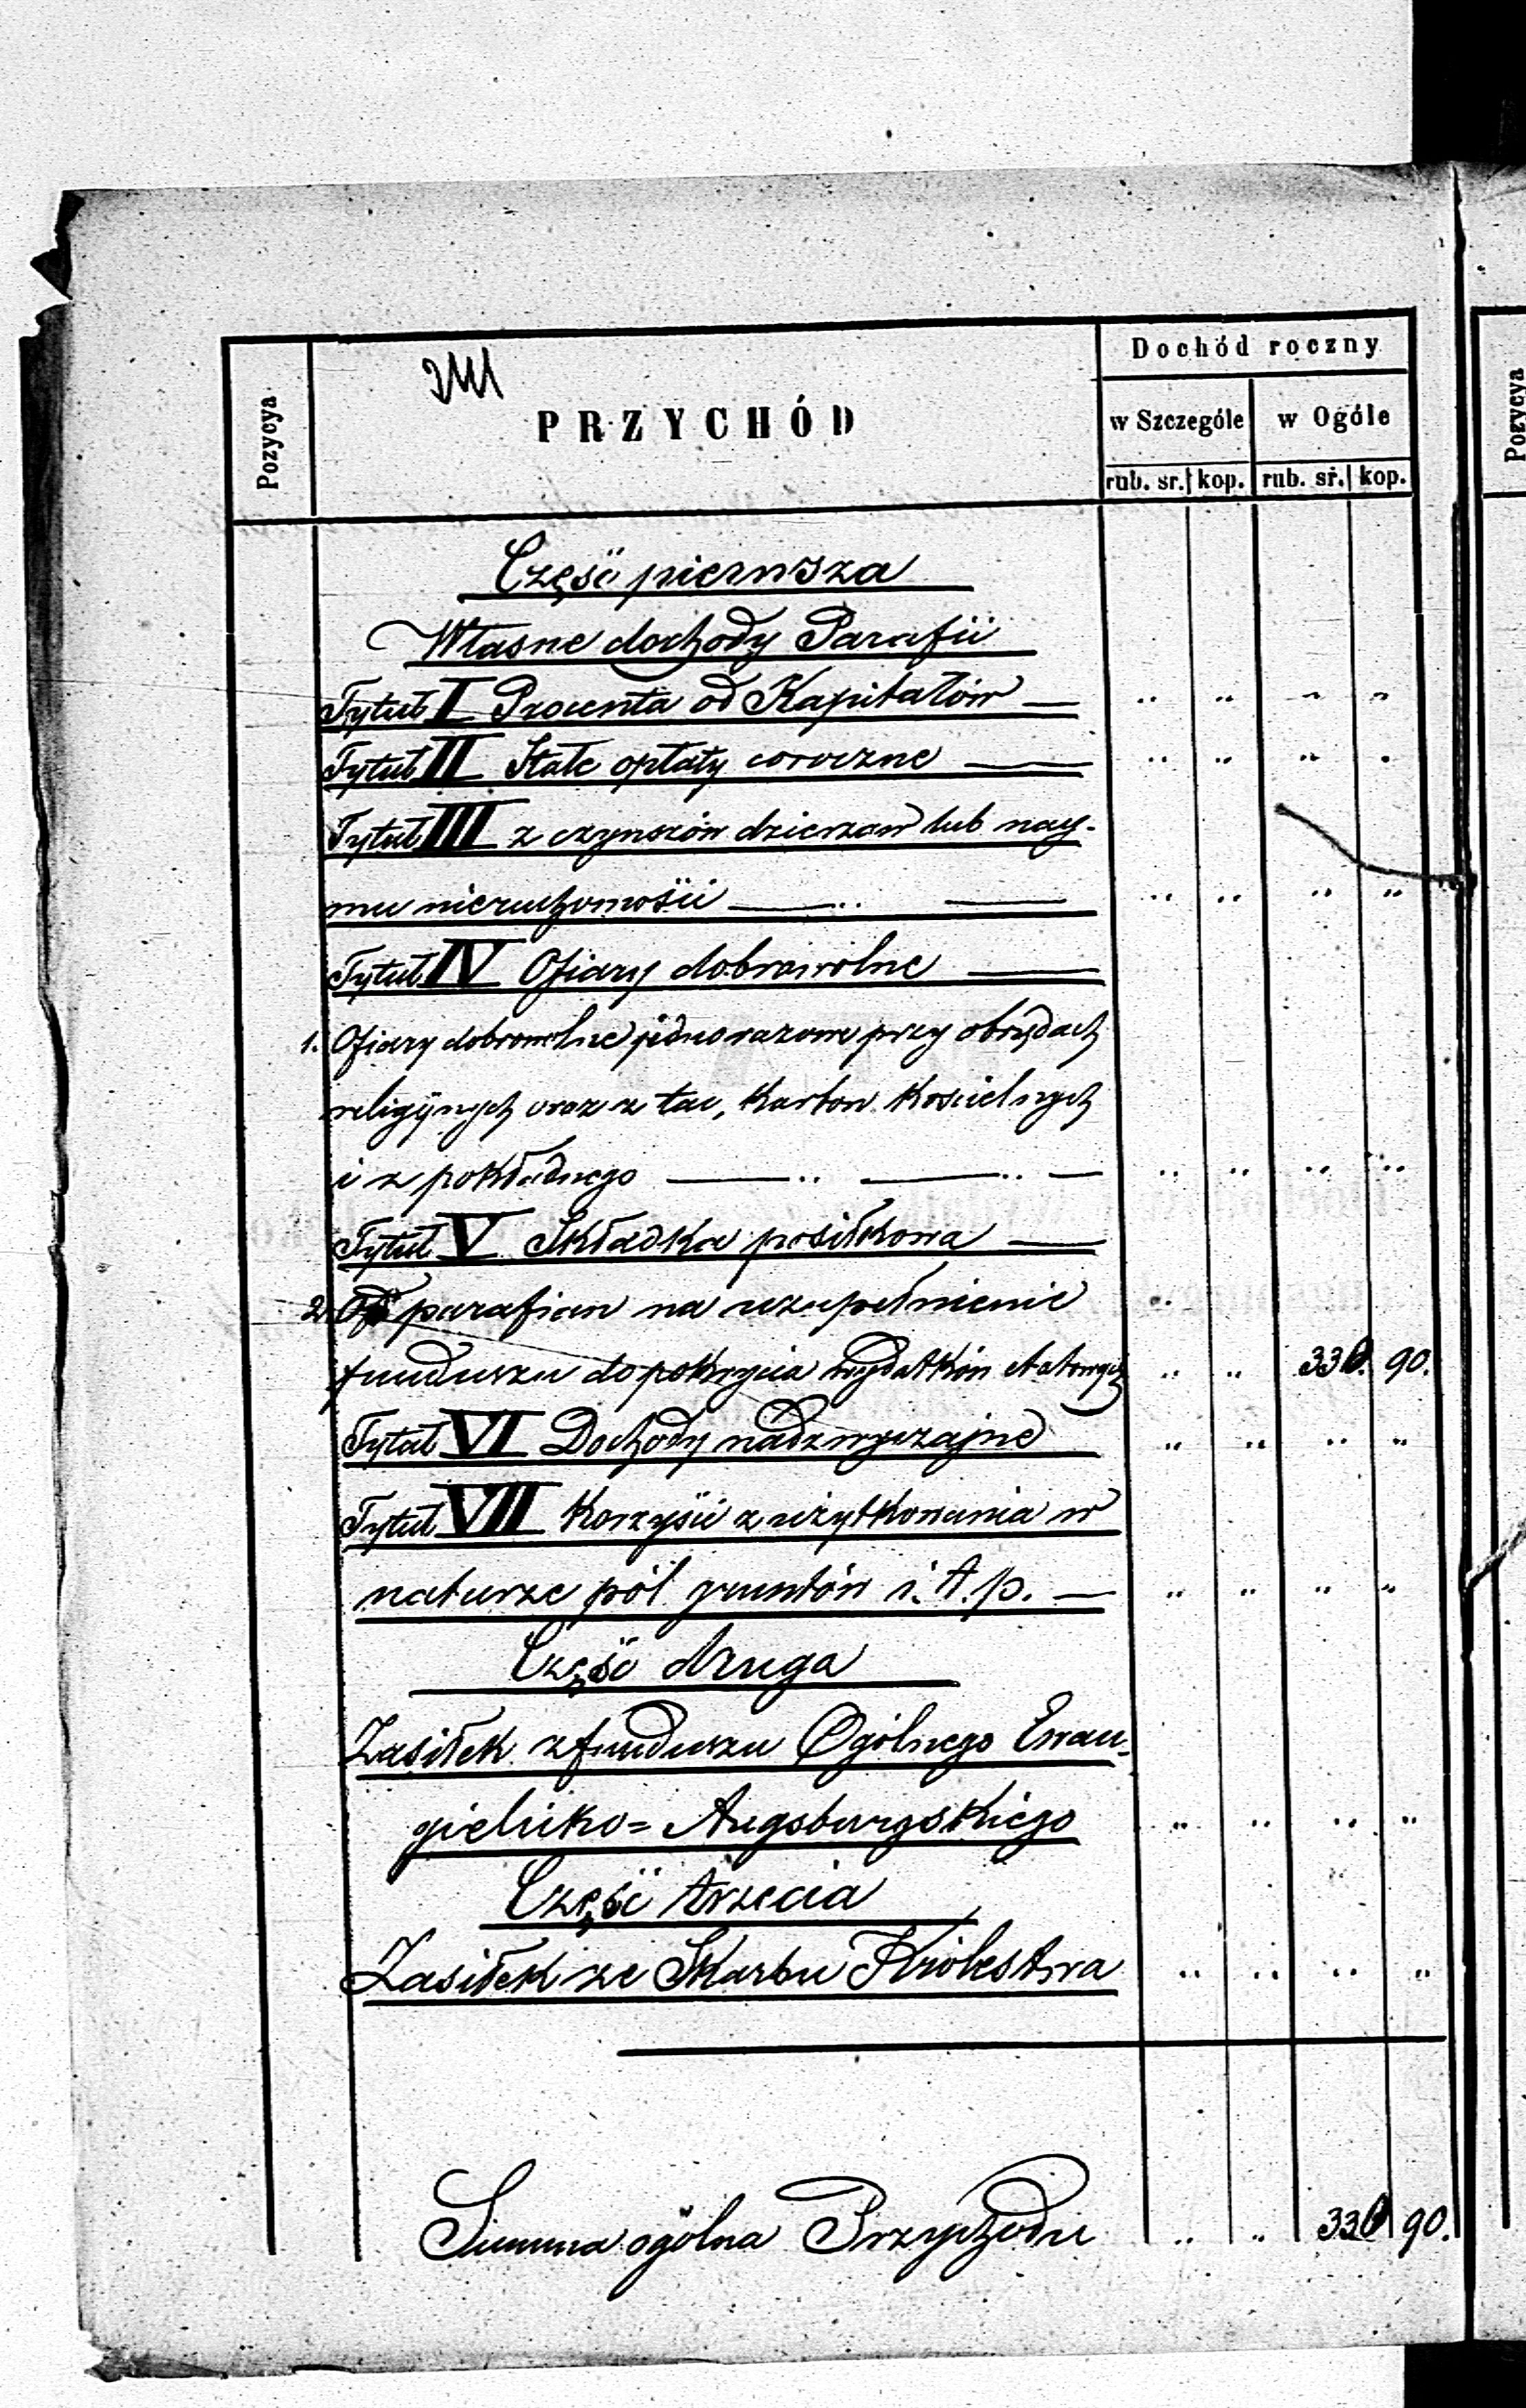 Pozycya
PRZYCHÓD
Dochód roczny
w Szczególe w Ogóle
rub. sr. kop. rub. sr. kop.
Pozycya
Część pierwsza
Własne dochody Parafii
Tytuł I Procenta od Kapitałów — „ „ „ „
Tytuł II Stałe opłaty coroczne — „ „ „ „
Tytuł III z czynszów dzierżaw lub nay-
mu nieruchomości — „ — „ „ „ „
Tytuł IV Ofiary dobrowolne —
1. Ofiary dobrowolne jednorazowe przy obrzędach
religijnych oraz z tac, karbon Kościelnych
i z pokładnego — „ — „ — „ „ „ „
Tytuł V Składka posiłkowa —
2. Od parafian na uzupełnienie
funduszu do pokrycia wydatków etatowych „ „ 336. 90.
Tytuł VI Dochody nadzwyczajne „ „ „ „
Tytuł VII Korzyści z użytkowania w
naturze pól gruntów i. t. p. — „ „ „ „
Część druga
Zasiłek z funduszu Ogólnego Ewan-
gielicko= Augsburgskiego „ „ „ „
Część trzecia
Zasiłek ze Skarbu Królestwa „ „ „ „
Summa ogólna Przychodu „ „ 336 90.